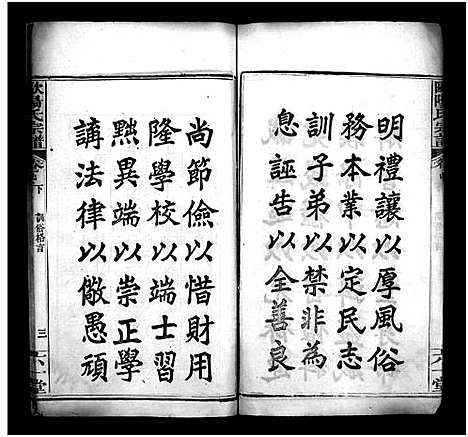 明禮讓以厚風俗
務本業以定民志
訓子弟以禁非為
息誣告以全善良
六一堂
尚節儉以惜財用
隆學校以端士習
黜異端以崇正學
講法律以儆愚頑
歐陽氏宗譜
卷
下
訓俗格言
三
六一堂